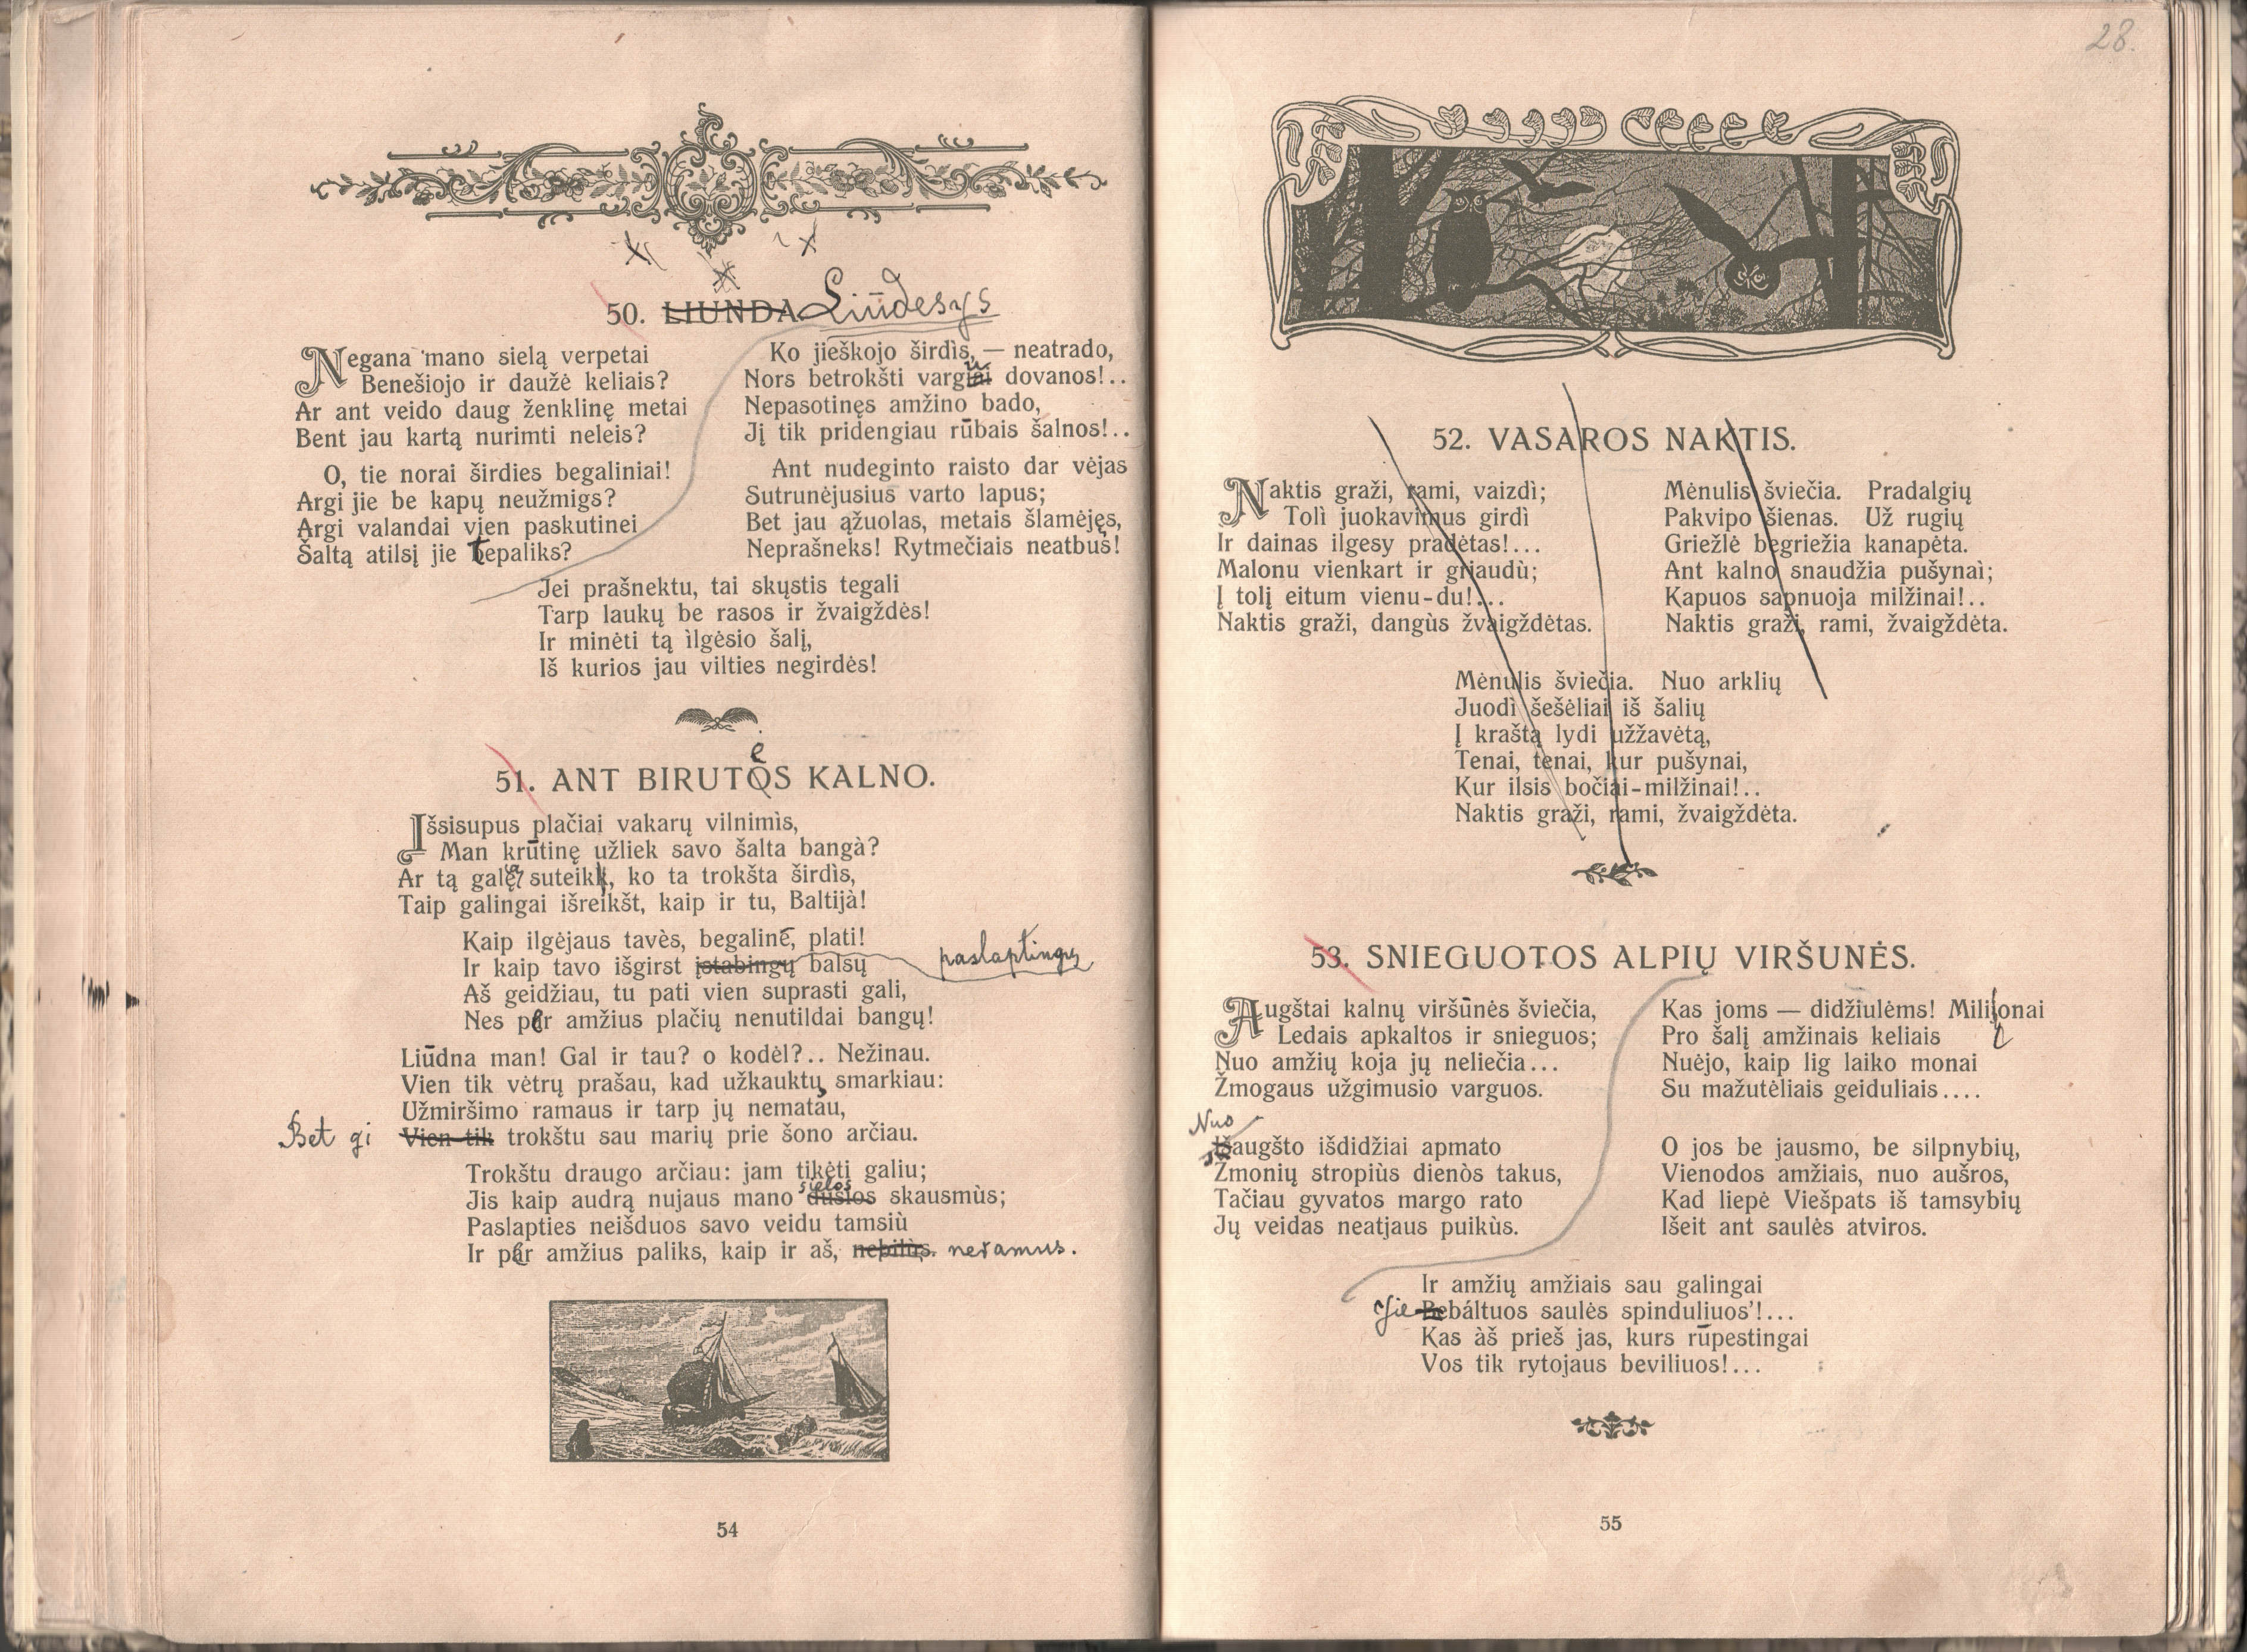 28.
50. LIUNDA Liūdesys
Negana mano sielą verpetai
Benešiojo ir daužė keliais?
Ar ant veido daug ženklinę metai
Bent jau kartą nurimti neleis?
O, tie norai širdies begaliniai!
Argi jie be kapų neužmigs?
Argi valandai vien paskutinei
Šaltą atilsį jie tepaliks?
Ko jieškojo širdìs, — neatrado,
Nors betrokšti dovanos!..
Nepasotinęs amžino bado,
Jį tik pridengiau rūbais šalnos!..
Ant nudeginto raisto dar vėjas
Sutrunėjusius varto lapus;
Bet jau ąžuolas, metais šlamėjęs,
Neprašneks! Rytmečiais neatbus!
Jei prašnektu, tai skųstis tegali
Tarp laukų be rasos ir žvaigždės!
Ir minėti tą ìlgėsio šalį,
Iš kurios jau vilties negirdės!
51. ANT BIRUTĖS KALNO.
Išsisupus plačiai vakarų vilnimìs,
Man krūtinę užliek savo šalta bangà?
Ar tą galę suteik, ko ta trokšta širdìs,
Taip galingai išreikšt, kaip ir tu, Baltijà!
Kaip ilgėjaus tavès, begalinė, plati!
Ir kaip tavo išgirst įstabingų balsų paslaptingų
Aš geidžiau, tu pati vien suprasti gali,
Nes per amžius plačių nenutildai bangų!
Liūdna man! Gal ir tau? o kodėl?.. Nežinau.
Vien tik vėtrų prašau, kad užkauktų smarkiau:
Užmiršimo ramaus ir tarp jų nematau,
Bet gi Vien tik trokštu sau marių prie šono arčiau.
Trokštu draugo arčiau: jam tikėti galiu;
sielos
Jis kaip audrą nujaus mano dušios skausmùs;
Paslapties neišduos savo veidu tamsiù
Ir per amžius paliks, kaip ir aš, nebilùs. neramus.
54
52. VASAROS NAKTIS.
Naktis graži, rami, vaizdì;
Tolì juokavimus girdì
Ir dainas ilgesy pradėtas!...
Malonu vienkart ir graudù;
Į tolį eitum vienu-du!...
Naktis graži, dangùs žvaigždėtas.
Mėnulis šviečia. Pradalgių
Pakvipo šienas. Už rugių
Griežlė begriežia kanapėta.
Ant kalno snaudžia pušynaì;
Kapuos sapnuoja milžinai!..
Naktis graži, rami, žvaigždėta.
Mėnulis šviečia. Nuo arklių
Juodì šešėliai iš šalių
Į kraštą lydi užžavėtą,
Tenai, tenai, kur pušynai,
Kur ilsis bočiai-milžinai!..
Naktis graži, rami, žvaigždėta.
53. SNIEGUOTOS ALPIŲ VIRŠUNĖS.
Augštai kalnų viršūnės šviečia,
Ledais apkaltos ir snieguos;
Nuo amžių koja jų neliečia...
Žmogaus užgimusio varguos.
Nuo
Iš augšto išdidžiai apmato
Žmonių stropiùs dienòs takus,
Tačiau gyvatos margo rato
Jų veidas neatjaus puikùs.
Kas joms — didžiulėms! Milijonai
Pro šalį amžinais keliais
Nuėjo, kaip lig laiko monai
Su mažutėliais geiduliais....
O jos be jausmo, be silpnybių,
Vienodos amžiais, nuo aušros,
Kad liepė Viešpats iš tamsybių
Išeit ant saulės atviros.
Ir amžių amžiais sau galingai
Jie Bebáltuos saulės spinduliuos'!...
Kas àš prieš jas, kurs rūpestingai
Vos tik rytojaus beviliuos!...
55